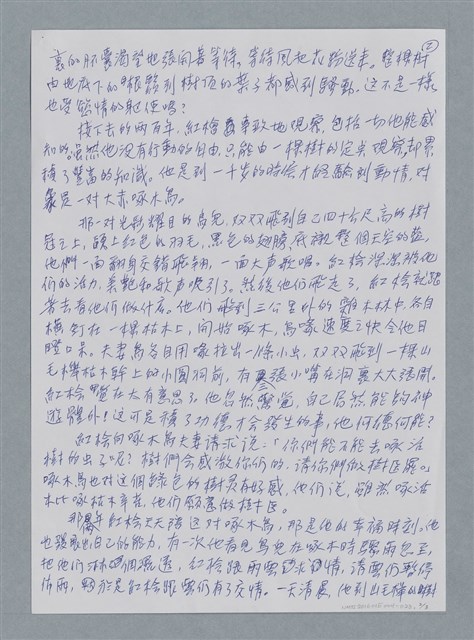 ②
裏的胚囊渴望地張開著等待。等待風把花粉送來。整棵樹
由地底下的根鬚到樹頂的葉子都感到騷動。這不是一樣
也受慾情的驅使嗎?
接下去的兩百年,紅檜專致地觀察,包括一切他能感
知的。雖然他沒有行動的自由,只能由一棵樹的定點觀察,却累
積了豐富的知識。他是到一千歲的時候才經驗到動情,對
象是一對大赤啄木鳥。
那一對光彩耀目的鳥兒,双双飛到自己四十公尺高的樹
冠之上,頭上紅色的羽毛,黑色的翅膀,底襯整個天空的藍,
他們一面翻身交錯飛翔,一面大声歌唱。紅檜深深被他
們的活力、美艷和歌声吸引了。然後他們飛走了,紅檜就跟
著去看他們做什麼。他們飛到三公里外的雜木林中,各自
橫釘在一棵枯木上,開始啄木,鳥喙速度之快令他目
瞪口呆。夫妻鳥各自用喙拉出一條小虫,双双飛到一棵山
毛櫸枯木幹上的小圓洞前,有張小嘴在洞裏大大張開。
紅檜覺在太有意思了。他忽然驚覺,自己居然能夠神
遊體外!這可是積了功德才會發生的事,他何德何能?
紅檜向啄木鳥夫妻請求說:「你們能不能去啄活
樹的虫子呢?樹們會感激你們的,請你們做樹医罷。」
啄木鳥也对這個綠色的樹灵有好感,他們說,雖然啄活
木比啄枯木辛苦,他們願意做樹医。
那年紅檜天天跟這对啄木鳥,那是他的幸福時刻。他
也發現出自己的能力,有一次他看見鳥兒在啄木時驟雨忽至,
把他們淋個濕透,紅檜跟雨雲求情,請雲們暫停
佈雨,於是紅檜跟雲們有了交情。一天清晨,他到山毛櫸的樹